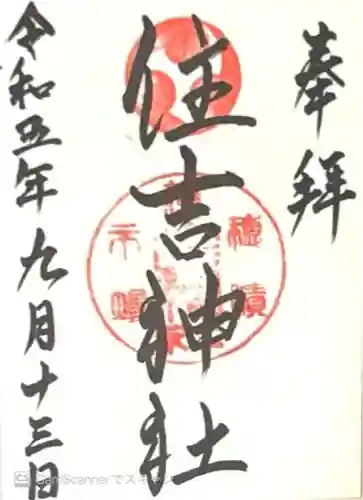 奉拝
住吉神社
令和五年九月十三日
CS CamScannerでスキャン